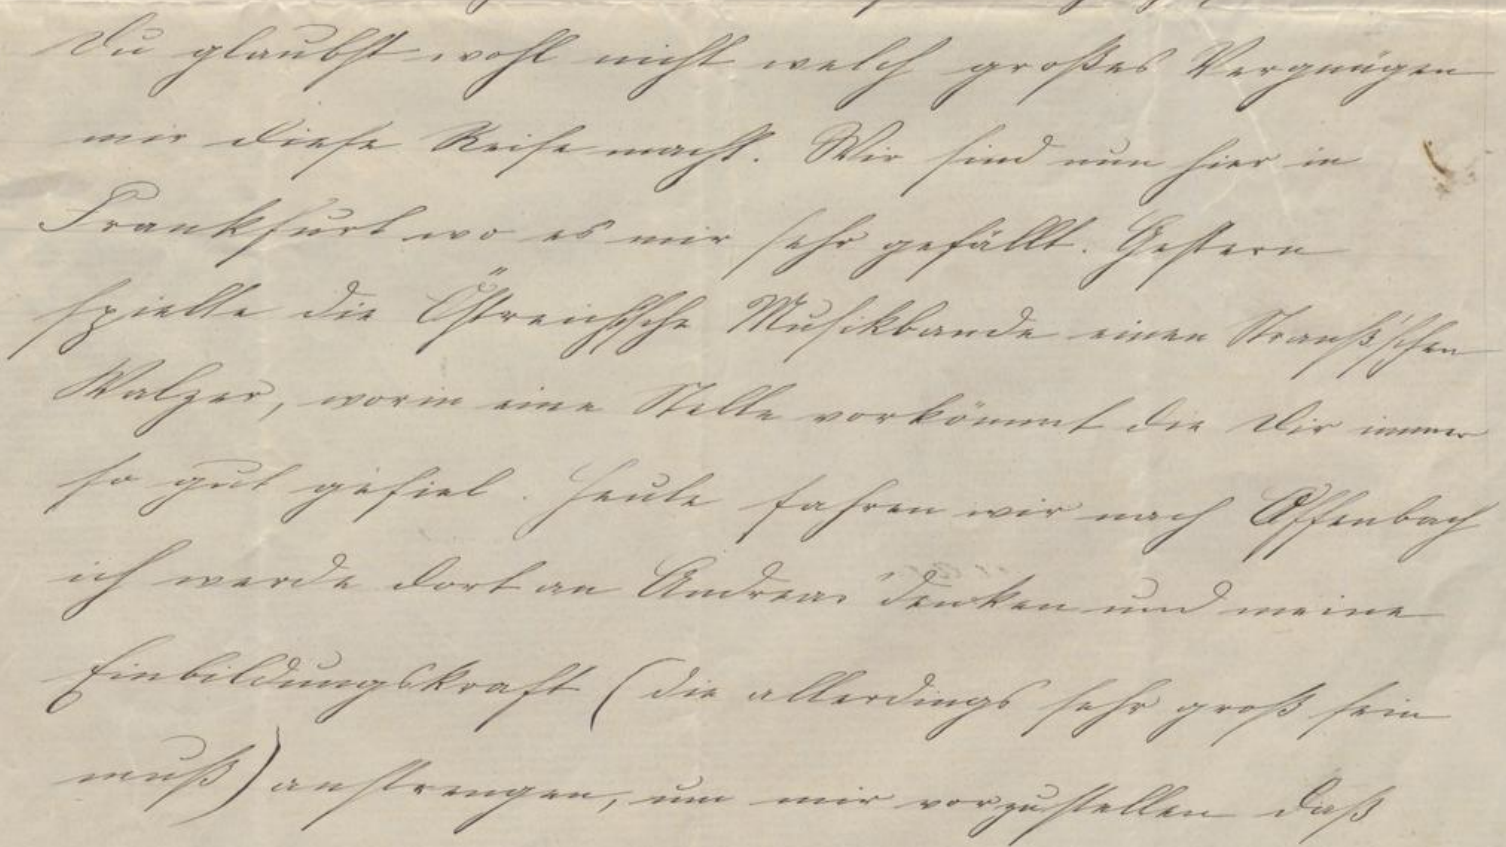 Du glaubst wohl nicht welch großes Vergnügen
mir diese Reise macht. Wir sind nun hier in
Frankfurt wo es mir sehr gefällt. Gestern
spielte die Östreichische Musikbande einen Strauß'schen
Walzer, worin eine Stelle vorkömmt die Dir immer
so gut gefiel. Heute fahren wir nach Offenbach
ich werde dort an Andreas denken und meine
Einbildungskraft (die allerdings sehr groß sein
muß) anstrengen, um mir vorzustellen daß